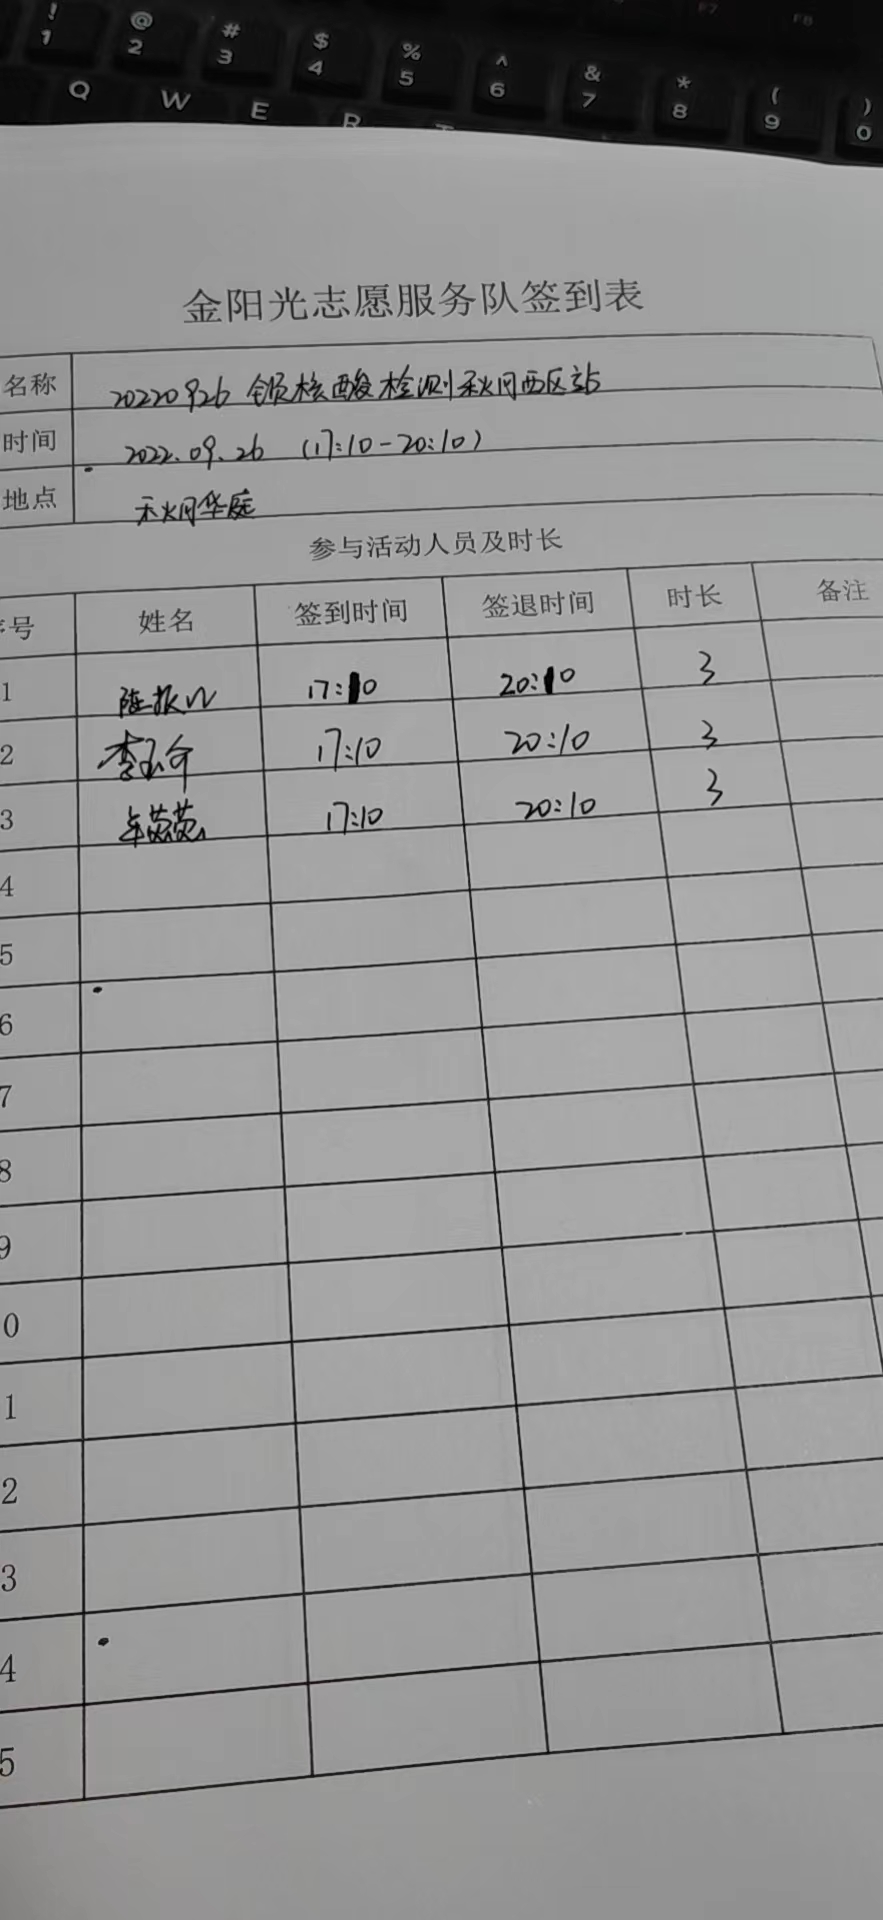 ! @ # $ % ^ & * ( )
1 2 3 4 5 6 7 8 9 0
F7 F8
Q W E R T
金阳光志愿服务队签到表
名称 20220926 镇核酸检测秋月西区站
时间 2022.09.26 (17:10-20:10)
地点 秋月华庭
参与活动人员及时长
序号 姓名 签到时间 签退时间 时长 备注
1 陈振 17:10 20:10 3
2 李玉介 17:10 20:10 3
3 车茵茵 17:10 20:10 3
4
5
6
7
8
9
0
1
2
3
4
5